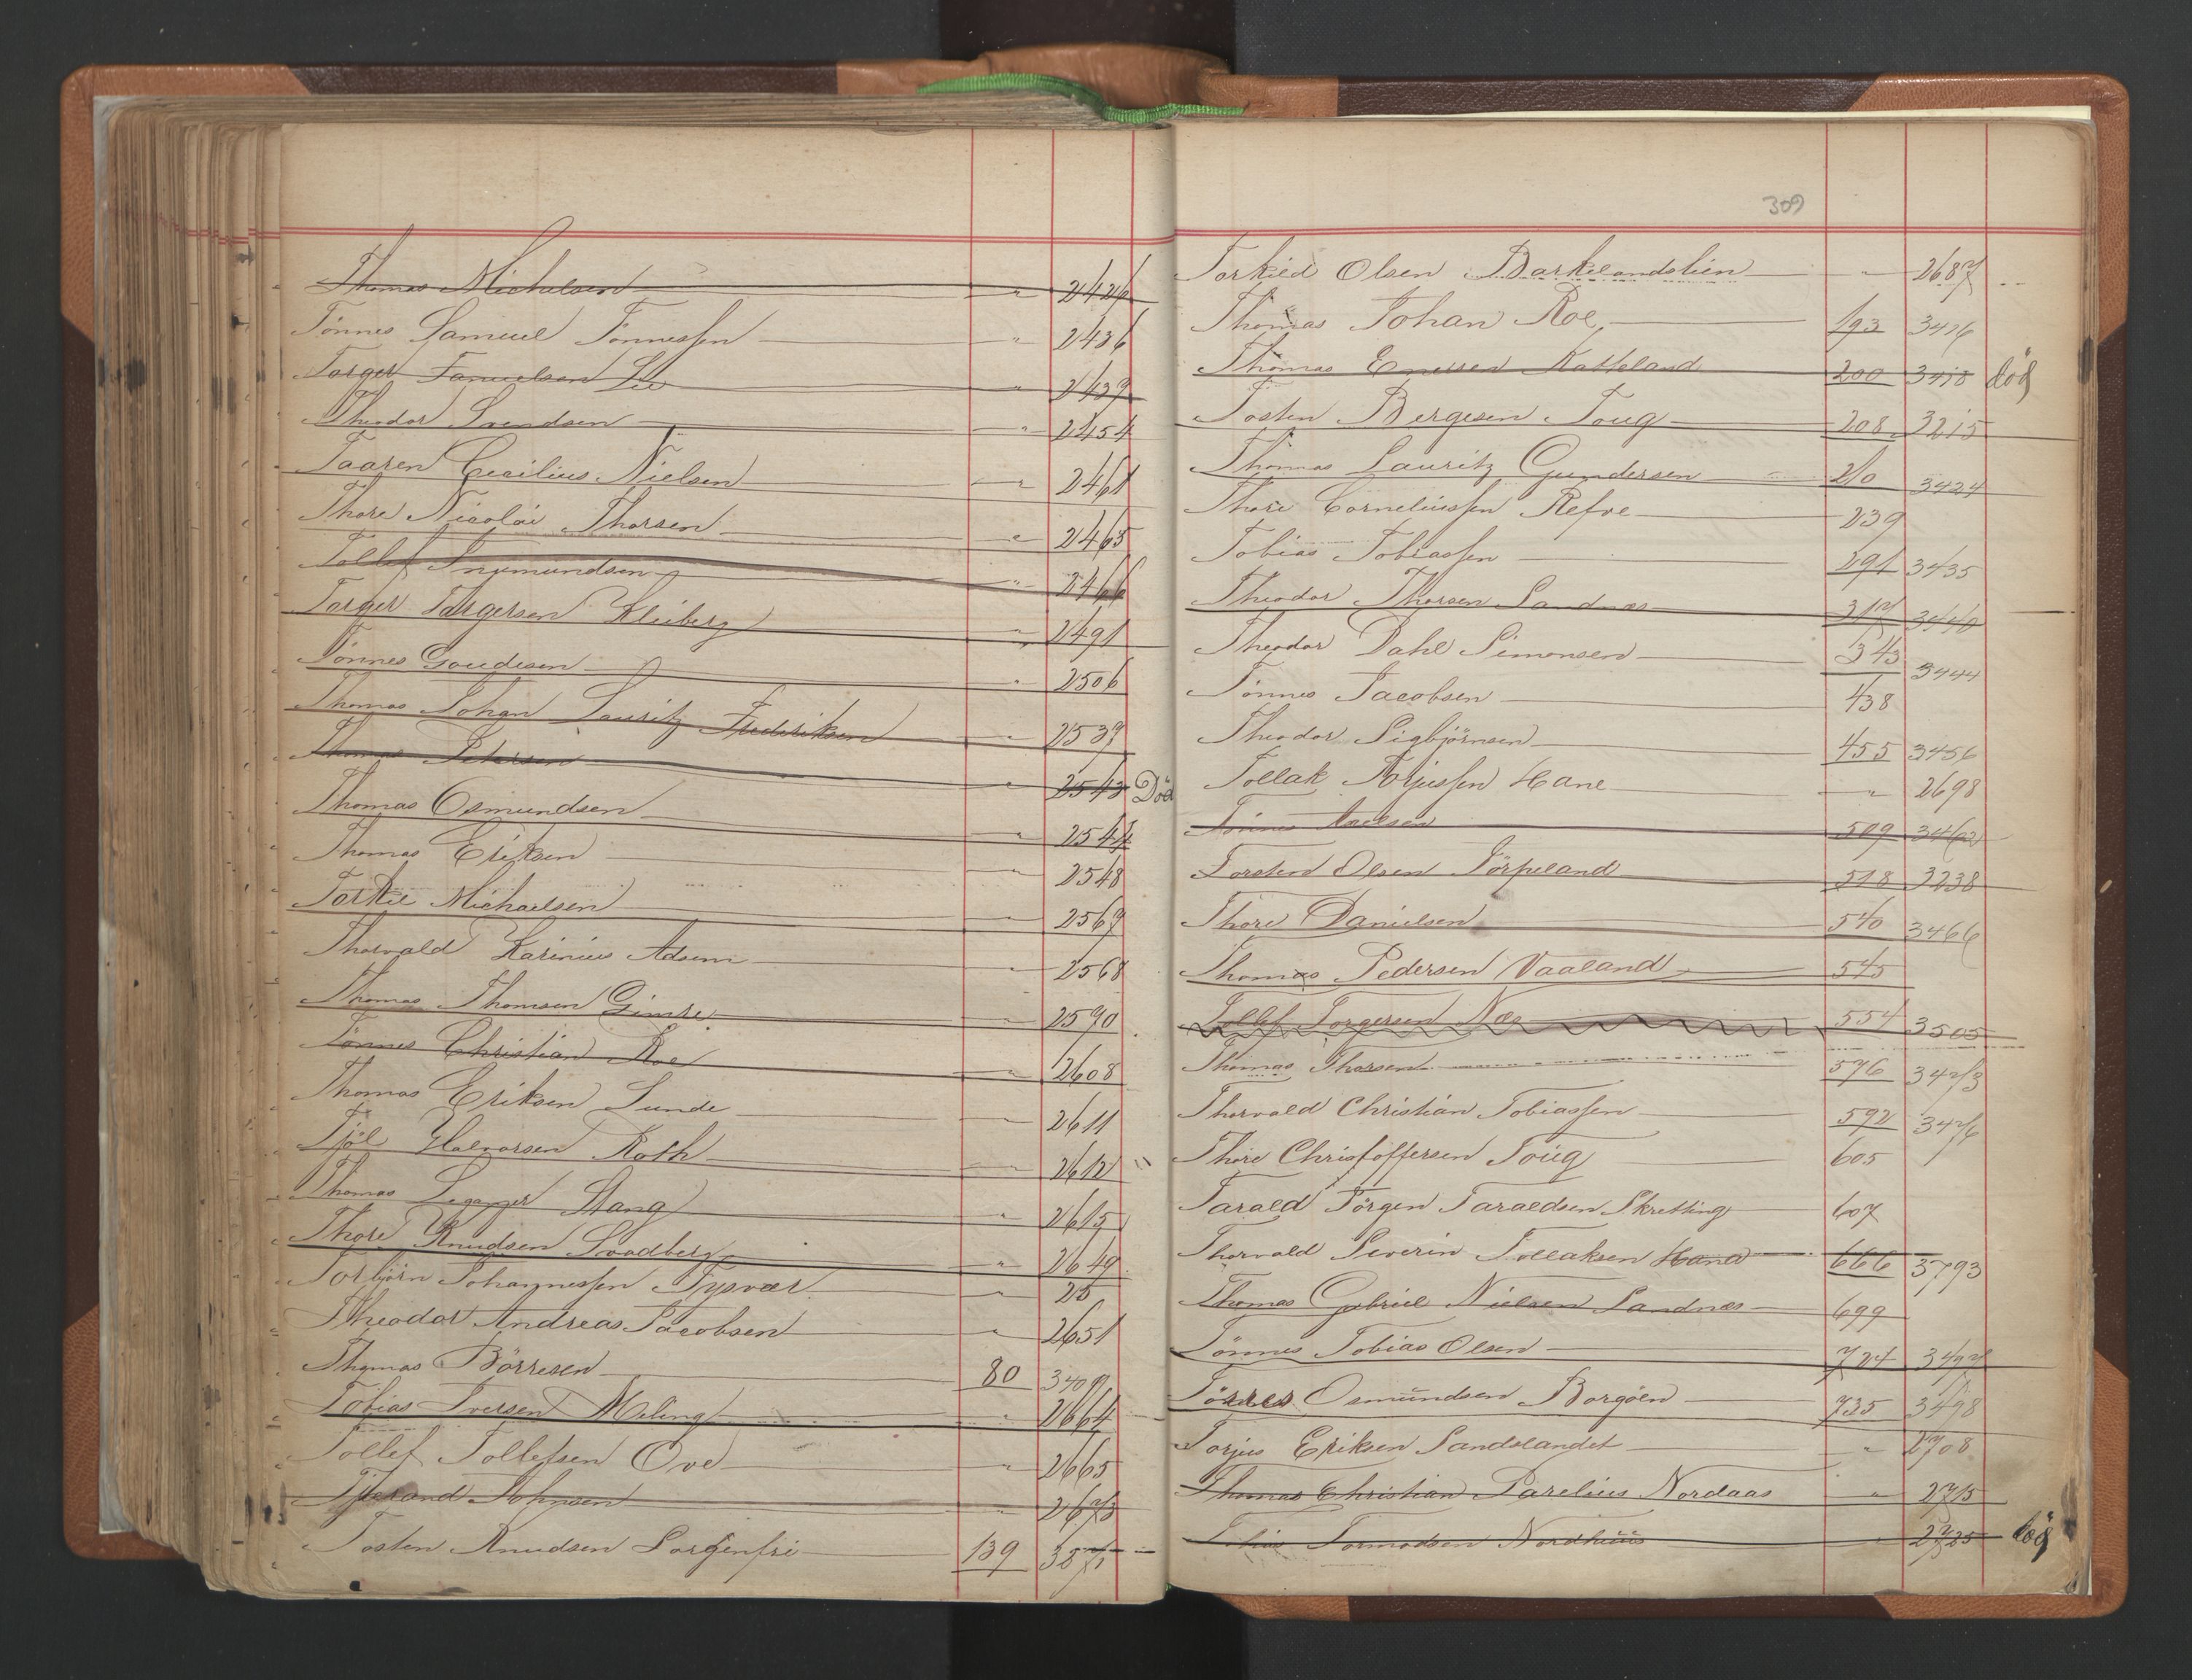 Thomas Michelsen " 2426
Tönnes Samuel Tönnessen " 2436
Torger Samuelsen Lie " 2439
Theodor Svendsen " 2454
Taaren Cecilius Nielsen " 2461
Thore Nicolai Thorsen " 2465
Tollef Ingemundsen " 2466
Torger Torgersen Kleiberg " 2491
Tönnes Goudesen " 2506
Thomas Johan Lauritz Frederiksen " 2539
Thomas Petersen " 2543 Död
Thomas Osmundsen " 2544
Thomas Eriksen " 2548
Torkil Michaelsen " 2567
Thorvald Karinius Adsen " 2568
Thomas Thomsen Gimre " 2590
Tönnes Christian Roe " 2608
Thomas Eriksen Lunde " 2611
Tjöl Halvorsen Roth " 2612
Thomas Leganger Stang " 2615
Thore Knudsen Soodberg " 2649
Torbjörn Johannessen Tysvær " 25
Theodor Andreas Jacobsen " 2651
Thomas Börresen 80 3409
Tobias Iversen Meling " 2664
Tollef Tollefsen Ove " 2665
Tjerand Johnsen " 2673
Tosten Knudsen Sorgenfri 139 3871
309
Torkild Olsen Barkelandslien " 2687
Thomas Johan Roe 193 3416
Thomas Katteland 200 3418 død
Tosten Bergesen Toug 208 3215
Thomas Lauritz Gundersen 210 3424
Thore Corneliussen Refve 239
Tobias Tobiassen 291 3435
Theodor Thorsen Sandnæs 317 3440
Theodor Dahl Simonsen 343 3444
Tönnes Jacobsen 438
Theodor Sigbjörnsen 455 3456
Tollak Torjussen Hane " 2698
Tönnes Axelsen 509 3462
Torsten Olsen Törpeland 518 3238
Thore Danielsen 540 3466
Thomas Pedersen Vaaland 545
Tollef Torgersen Næs 554 3505
Thomas Thorsen 576 3473
Thorvald Christian Tobiassen 592 3476
Thore Christoffersen Toug 605
Tarald Jörgen Taraldsen Skretting 607
Thorvald Severin Tollaksen Hana 666 3793
Thomas Gabriel Nielsen Sandnæs 699
Tönnes Tobias Olsen 724 3497
Törres Osmundsen Borgöen 735 3498
Torjus Eriksen Sandslandet " 2708
Thomas Christian Parelius Nordaas " 2715
Tobias Tormodsen Nordhuus " 2725 död